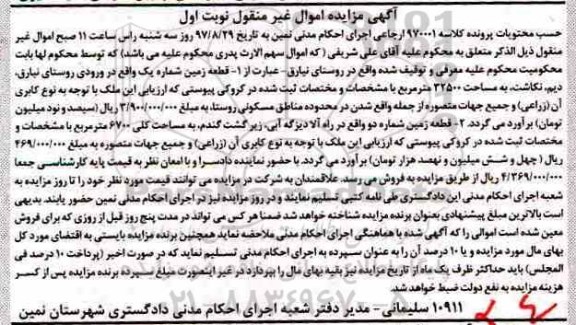 آگهی مزایده اموال غیر منقول نوبت اول
حسب محتویات پرونده کلاسه ۹۷۰۰۰۱ ارجاعی اجرای احکام مدنی نمین به تاریخ ۹۷/۸/۲۹ روز سه شنبه راس ساعت ۱۱ صبح اموال غیر
منقول ذیل الذکر متعلق به محکوم علیه آقای علی شریفی ( که اموال سهم الارث پدری محکوم علیه می باشد) که توسط محکوم لها بابت
محکومیت محکوم علیه معرفی و توقیف شده واقع در روستای نیارق- عبارت از ۱- قطعه زمین شماره یک واقع در ورودی روستای نیارق،
دیم، نکاشت، به مساحت ۳۲۵۰۰ مترمربع با مشخصات و مختصات ثبت شده در کروکی پیوستی که ارزیابی این ملک با توجه به نوع کایری
آن (زراعی) و جمیع جهات متصوره از جمله واقع شدن در محدوده مناطق مسکونی روستا، به مبلغ ۳/۹۰۰/۰۰۰/۰۰۰ ریال (سیصد و نود میلیون
تومان) برآورد می گردد. ۲- قطعه زمین شماره دو واقع در راه آلا دیزگه آبی، زیر گشت گندم، به مساحت کلی ۶۷۰۰ مترمربع با مشخصات و
مختصات ثبت شده در کروکی پیوستی که ارزیابی این ملک با توجه به نوع کایری آن (زراعی) و جمیع جهات متصوره به مبلغ ۴۶۹/۰۰۰/۰۰۰
ریال ( چهل و شش میلیون و نهصد هزار تومان) برآورد می گردد. با حضور نماینده دادسرا و با امعان نظر به قیمت پایه کارشناسی جمعا
۴/۳۶۹/۰۰۰/۰۰۰ ریال از طریق مزایده به فروش می رسد. علاقمندان به شرکت در مزایده می توانند قیمت مورد نظر خود را تا روز مزایده به
شعبه اجرای احکام مدنی این دادگستری طی نامه کتبی تسلیم نمایند و در روز مزایده نیز در اجرای احکام مدنی نمین حضور یابند. بدیهی
است بالاترین مبلغ پیشنهادی بعنوان برنده مزایده شناخته خواهد شد ضمنا هر کس می تواند در مدت پنج روز قبل از روزی که برای فروش
معین شده است اموالی را که آگهی شده با هماهنگی اجرای احکام مدنی ملاحظه نماید همچنین برنده مزایده بایستی به اقتضای مورد کل
بهای مال مورد مزایده و یا ۱۰ درصد آن را به عنوان سپرده به اجرای احکام مدنی تسلیم نماید که در صورت اخیر (پرداخت ۱۰ درصد فی
المجلس) باید حداکثر ظرف یک ماه از تاریخ مزایده نیز بقیه بهای مال را بپردازد در غیر اینصورت مبلغ سپرده برنده مزایده پس از کسر
هزینه مزایده به نفع دولت ضبط خواهد شد.
۱۰۹۱۱ سلیمانی- مدیر دفتر شعبه اجرای احکام مدنی دادگستری شهرستان نمین